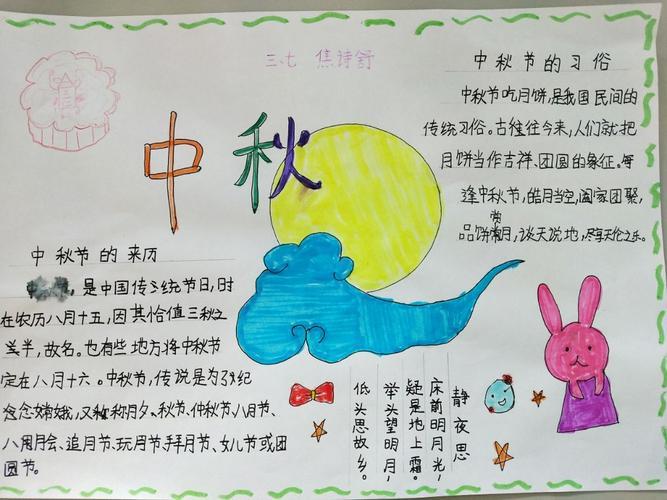 三.七 焦诗舒
中秋
中秋节的习俗
中秋节吃月饼,是我国民间的
传统习俗。古往往今来,人们就把
月饼当作吉祥、团圆的象征。每
逢中秋节,皓月当空,阖家团聚,
品饼赏月,谈天说地,尽享天伦之乐。
中秋节的来历
,是中国传统节日,时
在农历八月十五,因其恰值三秋之
半,故名。也有些地方将中秋节
定在八月十六。中秋节,传说是为了纪
念念嫦娥,又称月夕、秋节、仲秋节、八月节、
八月会、追月节、玩月节、拜月节、女儿节或团
圆节。
静夜思
床前明月光,
疑是地上霜。
举头望明月,
低头思故乡。